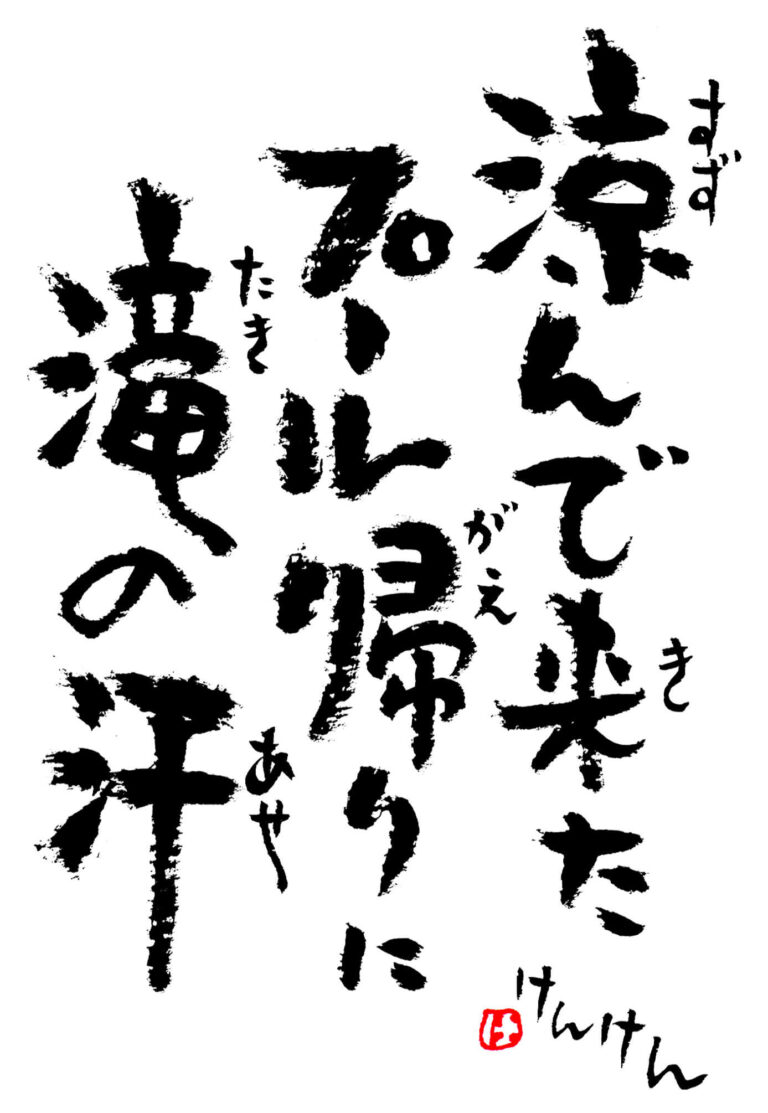 涼んで来た
すず
き
プール帰りに
がえ
滝の汗
たき
あせ
けんけん